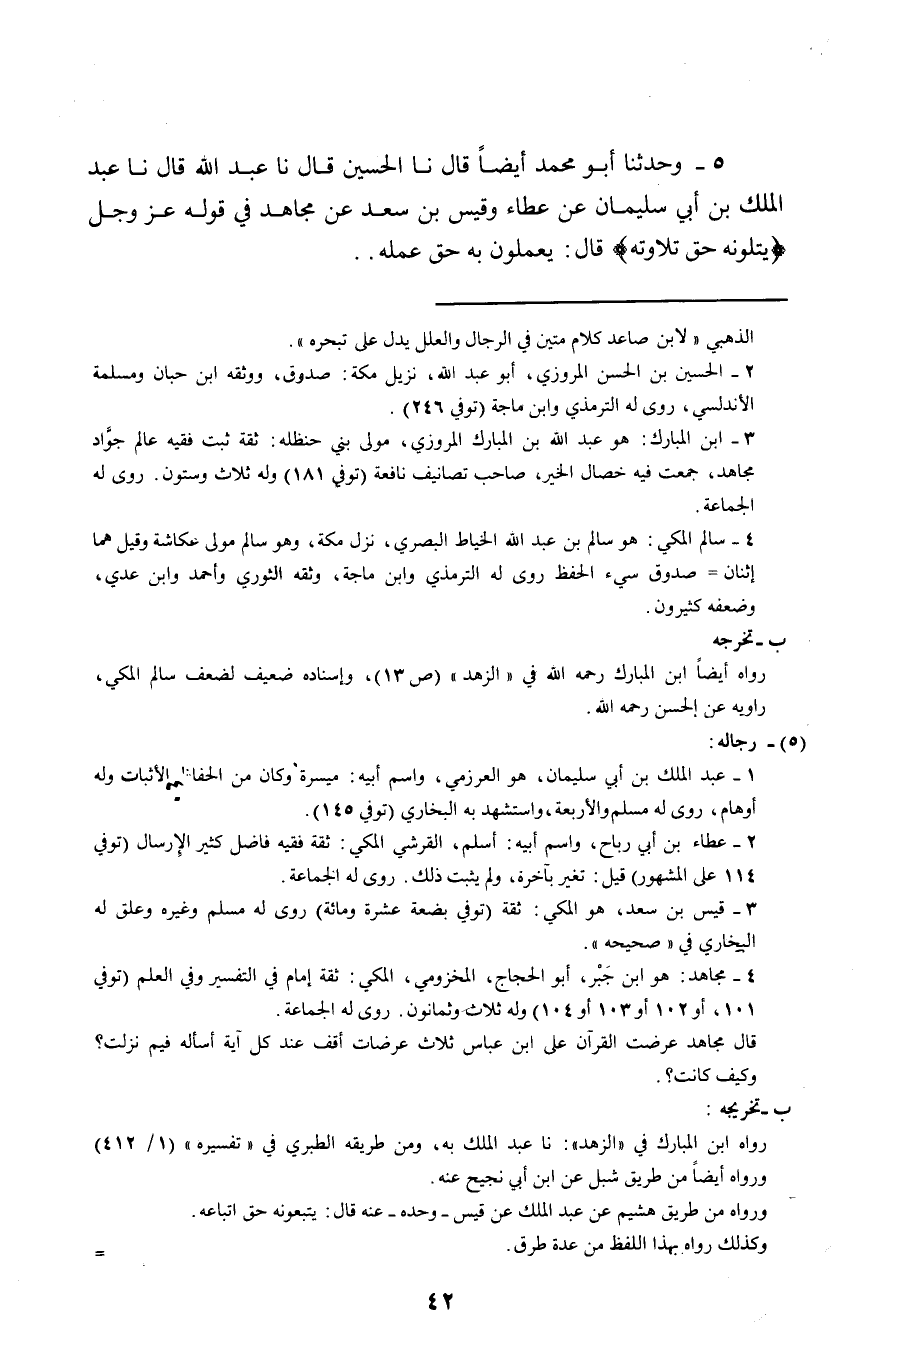 ٥ ـ وحدثنا أبـو محمد أيضـاً قال نـا الحسين قـال نا عبـد الله قال نـا عبد
الملك بن أبي سليمـان عن عطاء وقيس بن سعـد عن مجاهـد في قولـه عـز وجـل
﴿يتلونه حق تلاوته﴾ قال : يعملون به حق عمله . .
الذهبي « لابن صاعد كلام متين في الرجال والعلل يدل على تبحره » .
٢ ـ الحسين بن الحسن المروزي، أبو عبد الله، نزيل مكة : صدوق، ووثقه ابن حبان ومسلمة
الأندلسي، روى له الترمذي وابن ماجة (توفي ٢٤٦) .
٣ ـ ابن المبارك : هو عبد الله بن المبارك المروزي، مولى بني حنظله : ثقة ثبت فقيه عالم جوَّاد
مجاهد، جمعت فيه خصال الخير، صاحب تصانيف نافعة (توفي ١٨١) وله ثلاث وستون. روى له
الجماعة .
٤ ـ سالم المكي : هو سالم بن عبد الله الخياط البصري، نزل مكة، وهو سالم مولى عكاشة وقيل هما
إثنان = صدوق سيء الحفظ روى له الترمذي وابن ماجة، وثقه الثوري وأحمد وابن عدي،
وضعفه كثيرون .
ب ـ تخرجه
رواه أيضاً ابن المبارك رحمه الله في « الزهد » (ص ١٣)، وإسناده ضعيف لضعف سالم المكي،
راويه عن الحسن رحمه الله .
(٥) ـ رجاله :
١ ـ عبد الملك بن أبي سليمان، هو العرزمي، واسم أبيه : ميسرة وكان من الأثبات وله
أوهام، روى له مسلم والأربعة، واستشهد به البخاري (توفي ١٤٥).
٢ ـ عطاء بن أبي رباح، واسم أبيه : أسلم، القرشي المكي : ثقة فقيه فاضل كثير الإرسال (توفي
١١٤ على المشهور) قيل : تغير بآخرة، ولم يثبت ذلك. روى له الجماعة .
٣ ـ قيس بن سعد، هو المكي : ثقة (توفي بضعة عشرة ومائة) روى له مسلم وغيره وعلق له
البخاري في « صحيحه » .
٤ ـ مجاهد : هو ابن جَبْر، أبو الحجاج، المخزومي، المكي : ثقة إمام في التفسير وفي العلم (توفي
١٠١، أو ١٠٢ أو ١٠٣ أو ١٠٤) وله ثلاث وثمانون. روى له الجماعة .
قال مجاهد عرضت القرآن على ابن عباس ثلاث عرضات أقف عند كل آية أسأله فيم نزلت؟
وكيف كانت؟ .
ب ـ تخريجه :
رواه ابن المبارك في «الزهد» : نا عبد الملك به، ومن طريقه الطبري في « تفسيره » (١/ ٤١٢)
ورواه أيضاً من طريق شبل عن ابن أبي نجيح عنه .
ورواه من طريق هشيم عن عبد الملك عن قيس ـ وحده ـ عنه قال : يتبعونه حق اتباعه .
وكذلك رواه بهذا اللفظ من عدة طرق .
=
٤٢